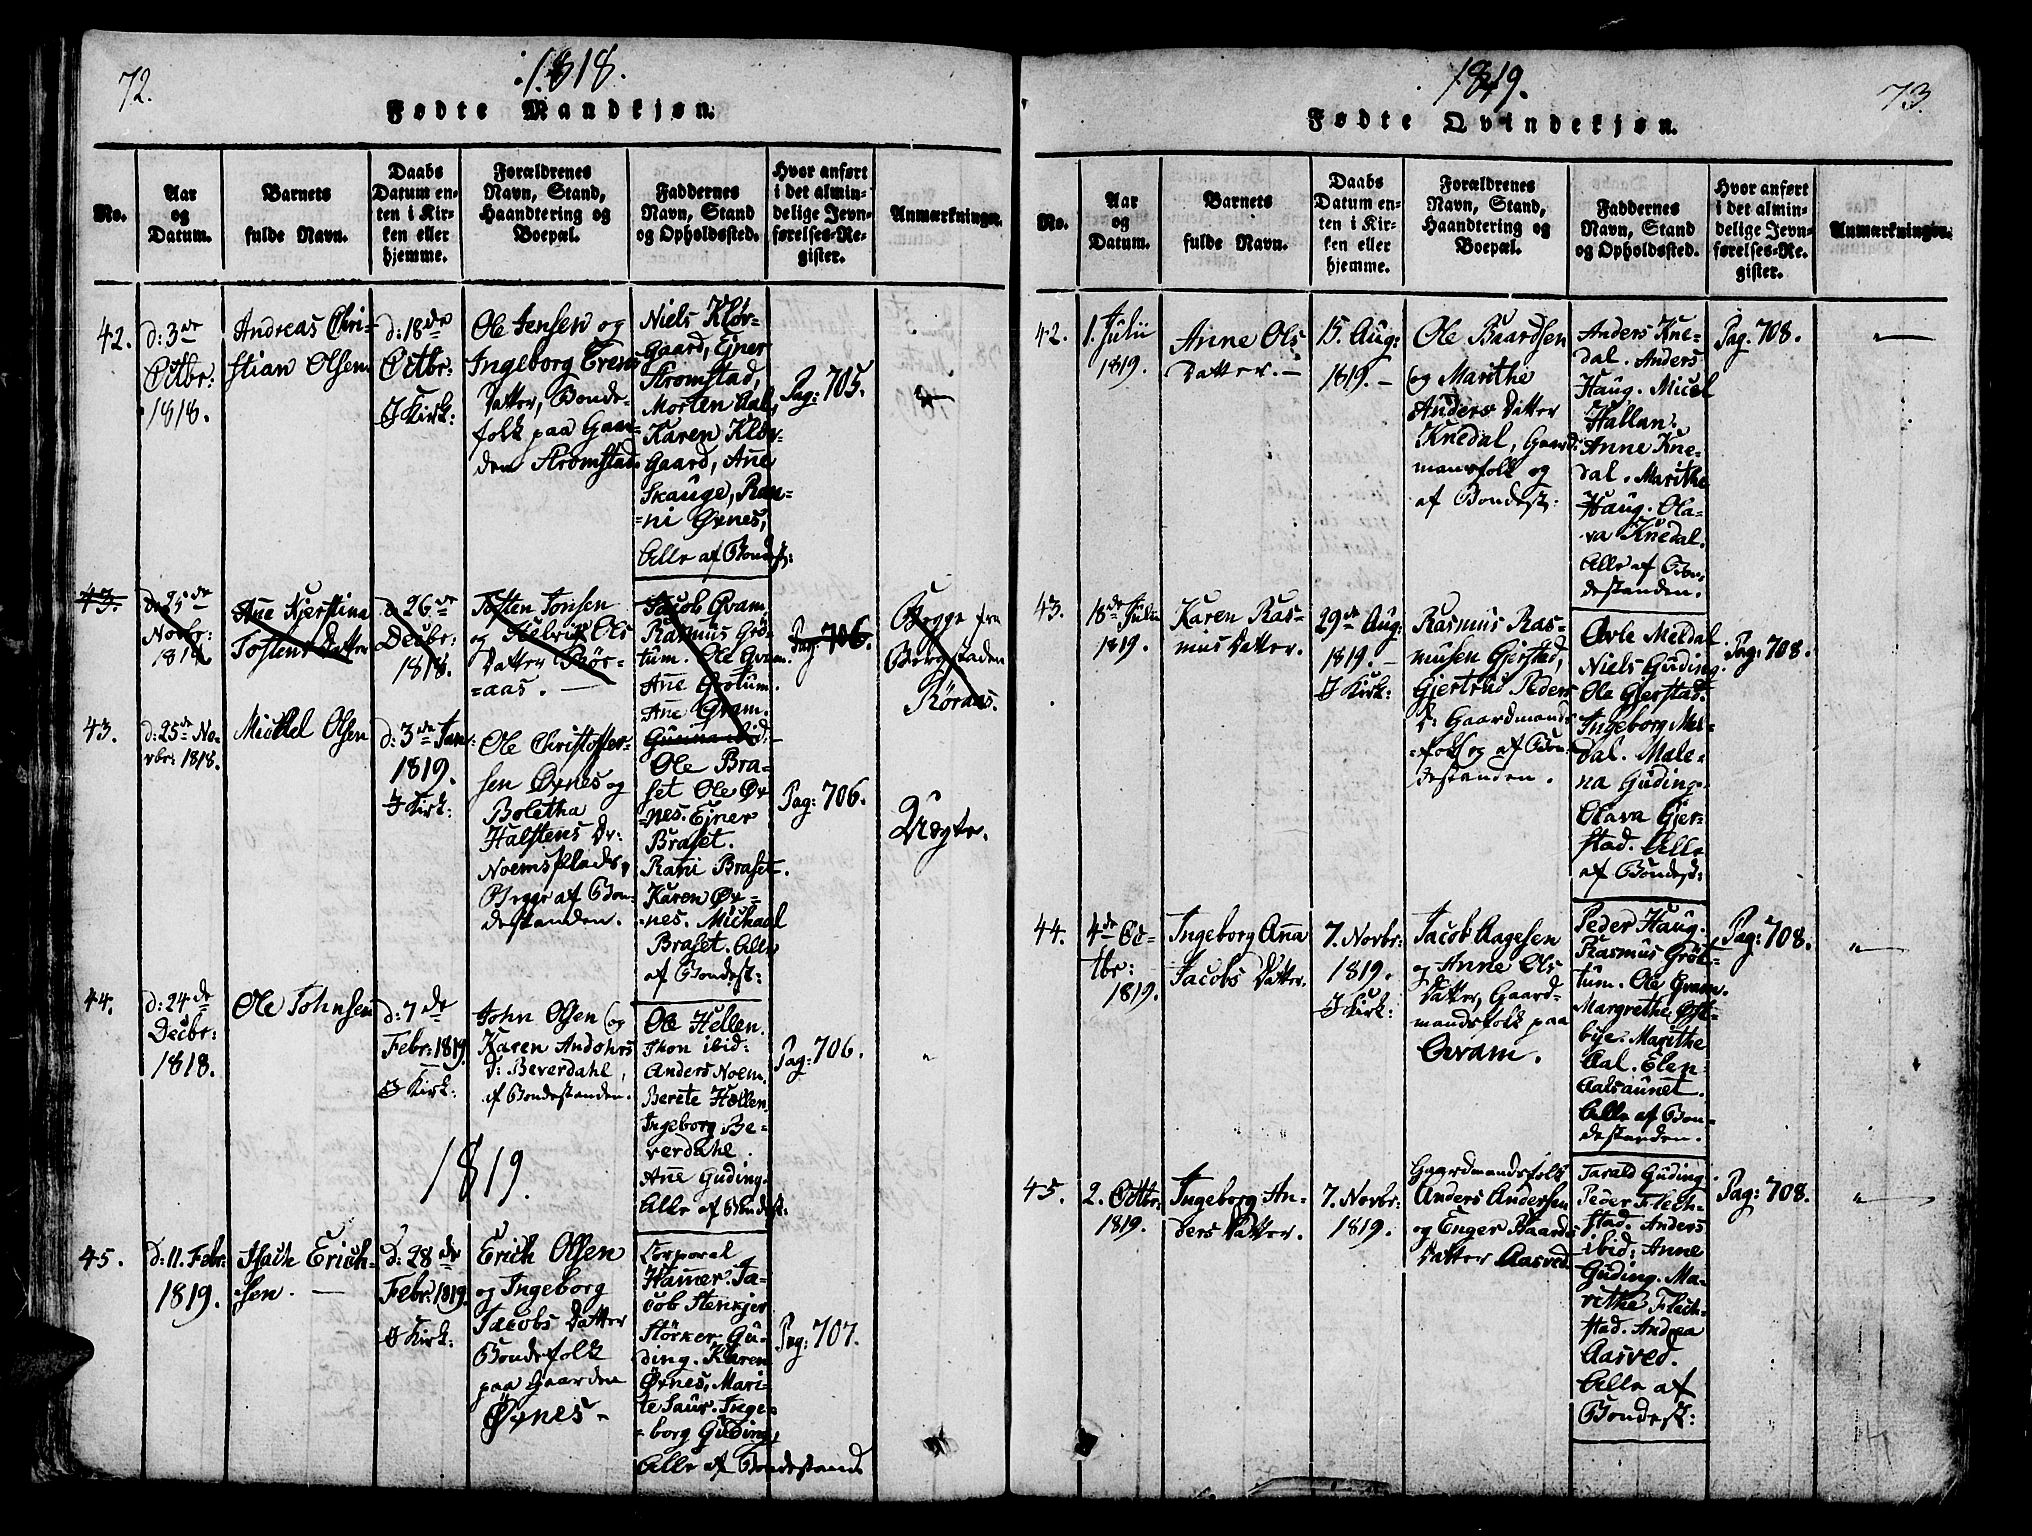 72.
1818.
Fødte Mandkjøn.
No.
Aar
og
Datum.
Barnets
fulde Navn.
Daabs
Datum en-
ten i Kir-
ken eller
hjemme.
Forældrenes
Navn, Stand,
Haandtering og
Boepæl.
Faddernes
Navn, Stand
og Opholdssted.
Hvor anført
i det almin-
delige Jevn-
førelses-Re-
gister.
Anmærkninger.
42.
d: 3de
Octbr:
1818.
Andreas Chri-
stian Olsen
d: 18de
Octbr:
I Kirk:
Ole Jensen og
Ingeborg Erens
Datter, Bonde-
folk paa Gaar-
den Stromstad
Niels Kløv-
Gaard, Ejner
Stromstad,
Morten Aal,
Karen Kløv-
Gaard, Ane
Skauge, Ran-
=ni Ørnes,
Alle af Bondest:
Pag: 705.
43.
d: 25de
Novbr:
1818
Ane Kjerstina
Tostens Datter
d: 26de
Decbr:
1818.
Tosten Jonsen
og Helvig Ols
Datter Rør-
=aas.
Jacob Qvam.
Rasmus Grö-
tum. Ole Qvam.
Ane Grotum.
Ane Qvam.
Gunna ibid:
Pag: 706.
Begge fra
Bergstaden
Röraas.
43.
d: 25de No-
vbr: 1818.
Mickel Olsen
d: 3de Janr:
1819.
I Kirk:
Ole Christoffer-
sen Ørnes og
Boletha
Halstens Dr:
Noemsplads,
Begge af Bon-
destanden.
Ole Bra-
set Ole Ør-
=nes. Ejner
Braset.
Rani Braset.
Karen Ør-
nes. Michael
Braset. Alle
af Bondest:
Pag: 706.
Uægte.
44.
d: 24de
Decbr:
1818.
Ole Johnsen
d: 7de
Febr: 1819.
I Kirk:
John Olsen og
Karen Andohrs
D: Beverdahl,
af Bondestanden.
Ole Hellen.
Jhon ibid:
Anders Noem.
Berete Hellen.
Ingeborg Be-
verdahl.
Ane Guding.
Alle af Bondest:
Pag: 706.
"
1819.
45.
D: 11. Febr:
1819.
Isach Erich-
sen.
D: 28de
Febr: 1819.
I Kirk:
Erich Olsen
og Ingeborg
Jacobs Datter
Bondefolk
paa Gaarden
Ørnes-
Corporal
Hamer. Ja-
cob Stenkjer
Störker Gu-
ding. Karen
Ørnes, Mari-
te Saur. Inge-
=borg Guding,
Alle af Bondestand
Pag: 707.
1819.
73.
Fødte Qvindekjøn.
No.
Aar
og
Datum.
Barnets
fulde Navn.
Daabs
Datum en-
ten i Kir-
ken eller
hjemme.
Forældrenes
Navn, Stand,
Haandtering og
Boepæl.
Faddernes
Navn, Stand
og Opholdssted.
Hvor anført
i det almin-
delige Jevn-
førelses-Re-
gister.
Anmærkninger.
42.
1. Julii
1819.
Anne Ols
Datter. -
15. Aug:
1819. -
Ole Baardsen
og Marithe
Anders Datter
Knedal, Gaard
mansfolk og
af Bondest:
Anders Kne-
dal. Anders
Haug. Micel
Hallan.
Anne Kne-
dal. Marithe
Haug. Ola-
va Knedal.
Alle af Bon-
destanden.
Pag: 708.
43.
18de Julii
1819.
Karen Ras-
mus Datter.
29de Aug:
1819. -
I Kirk:
Rasmus Ras-
musen Gjersted,
Gjertrud Peders
D: Gaardmands
=folk og af Bon-
destanden.
Ovle Meldal
Niels Guding
Ole Gjerstad.
Ingeborg Mel-
dal. Male-
na Guding.
Olava Gjer-
stad. Alle
af Bondest:
Pag: 708.
44.
4de Oc-
tbr:
1819.
Ingeborg Ana
Jacobs Datter.
7. Novbr:
1819.
I Kirk:
Jacob Aagesen
og Anne Ols
Datter, Gaard-
mandsfolk paa
Qvam.
Peder Haug.
Rasmus Gröt-
tum. Ole Qvam.
Margrethe Øst-
bye. Marithe
Aal. Elen
Aalsaunet.
Alle af Bon-
destanden.
Pag: 708.
"
45.
2. Octbr:
1819.
Ingeborg An-
ders Datter.
7. Novbr:
1819.
Gaardmandsfolk
Anders Andersen
og Enger Haardes
Datter Aasved
Tarald Guding.
Peder Flech-
stad. Anders
ibid: Anne
Guding. Ma-
rethe Flech-
stad. Andrea
Aasved.
Alle af
Bondest:
Pag: 708.
"